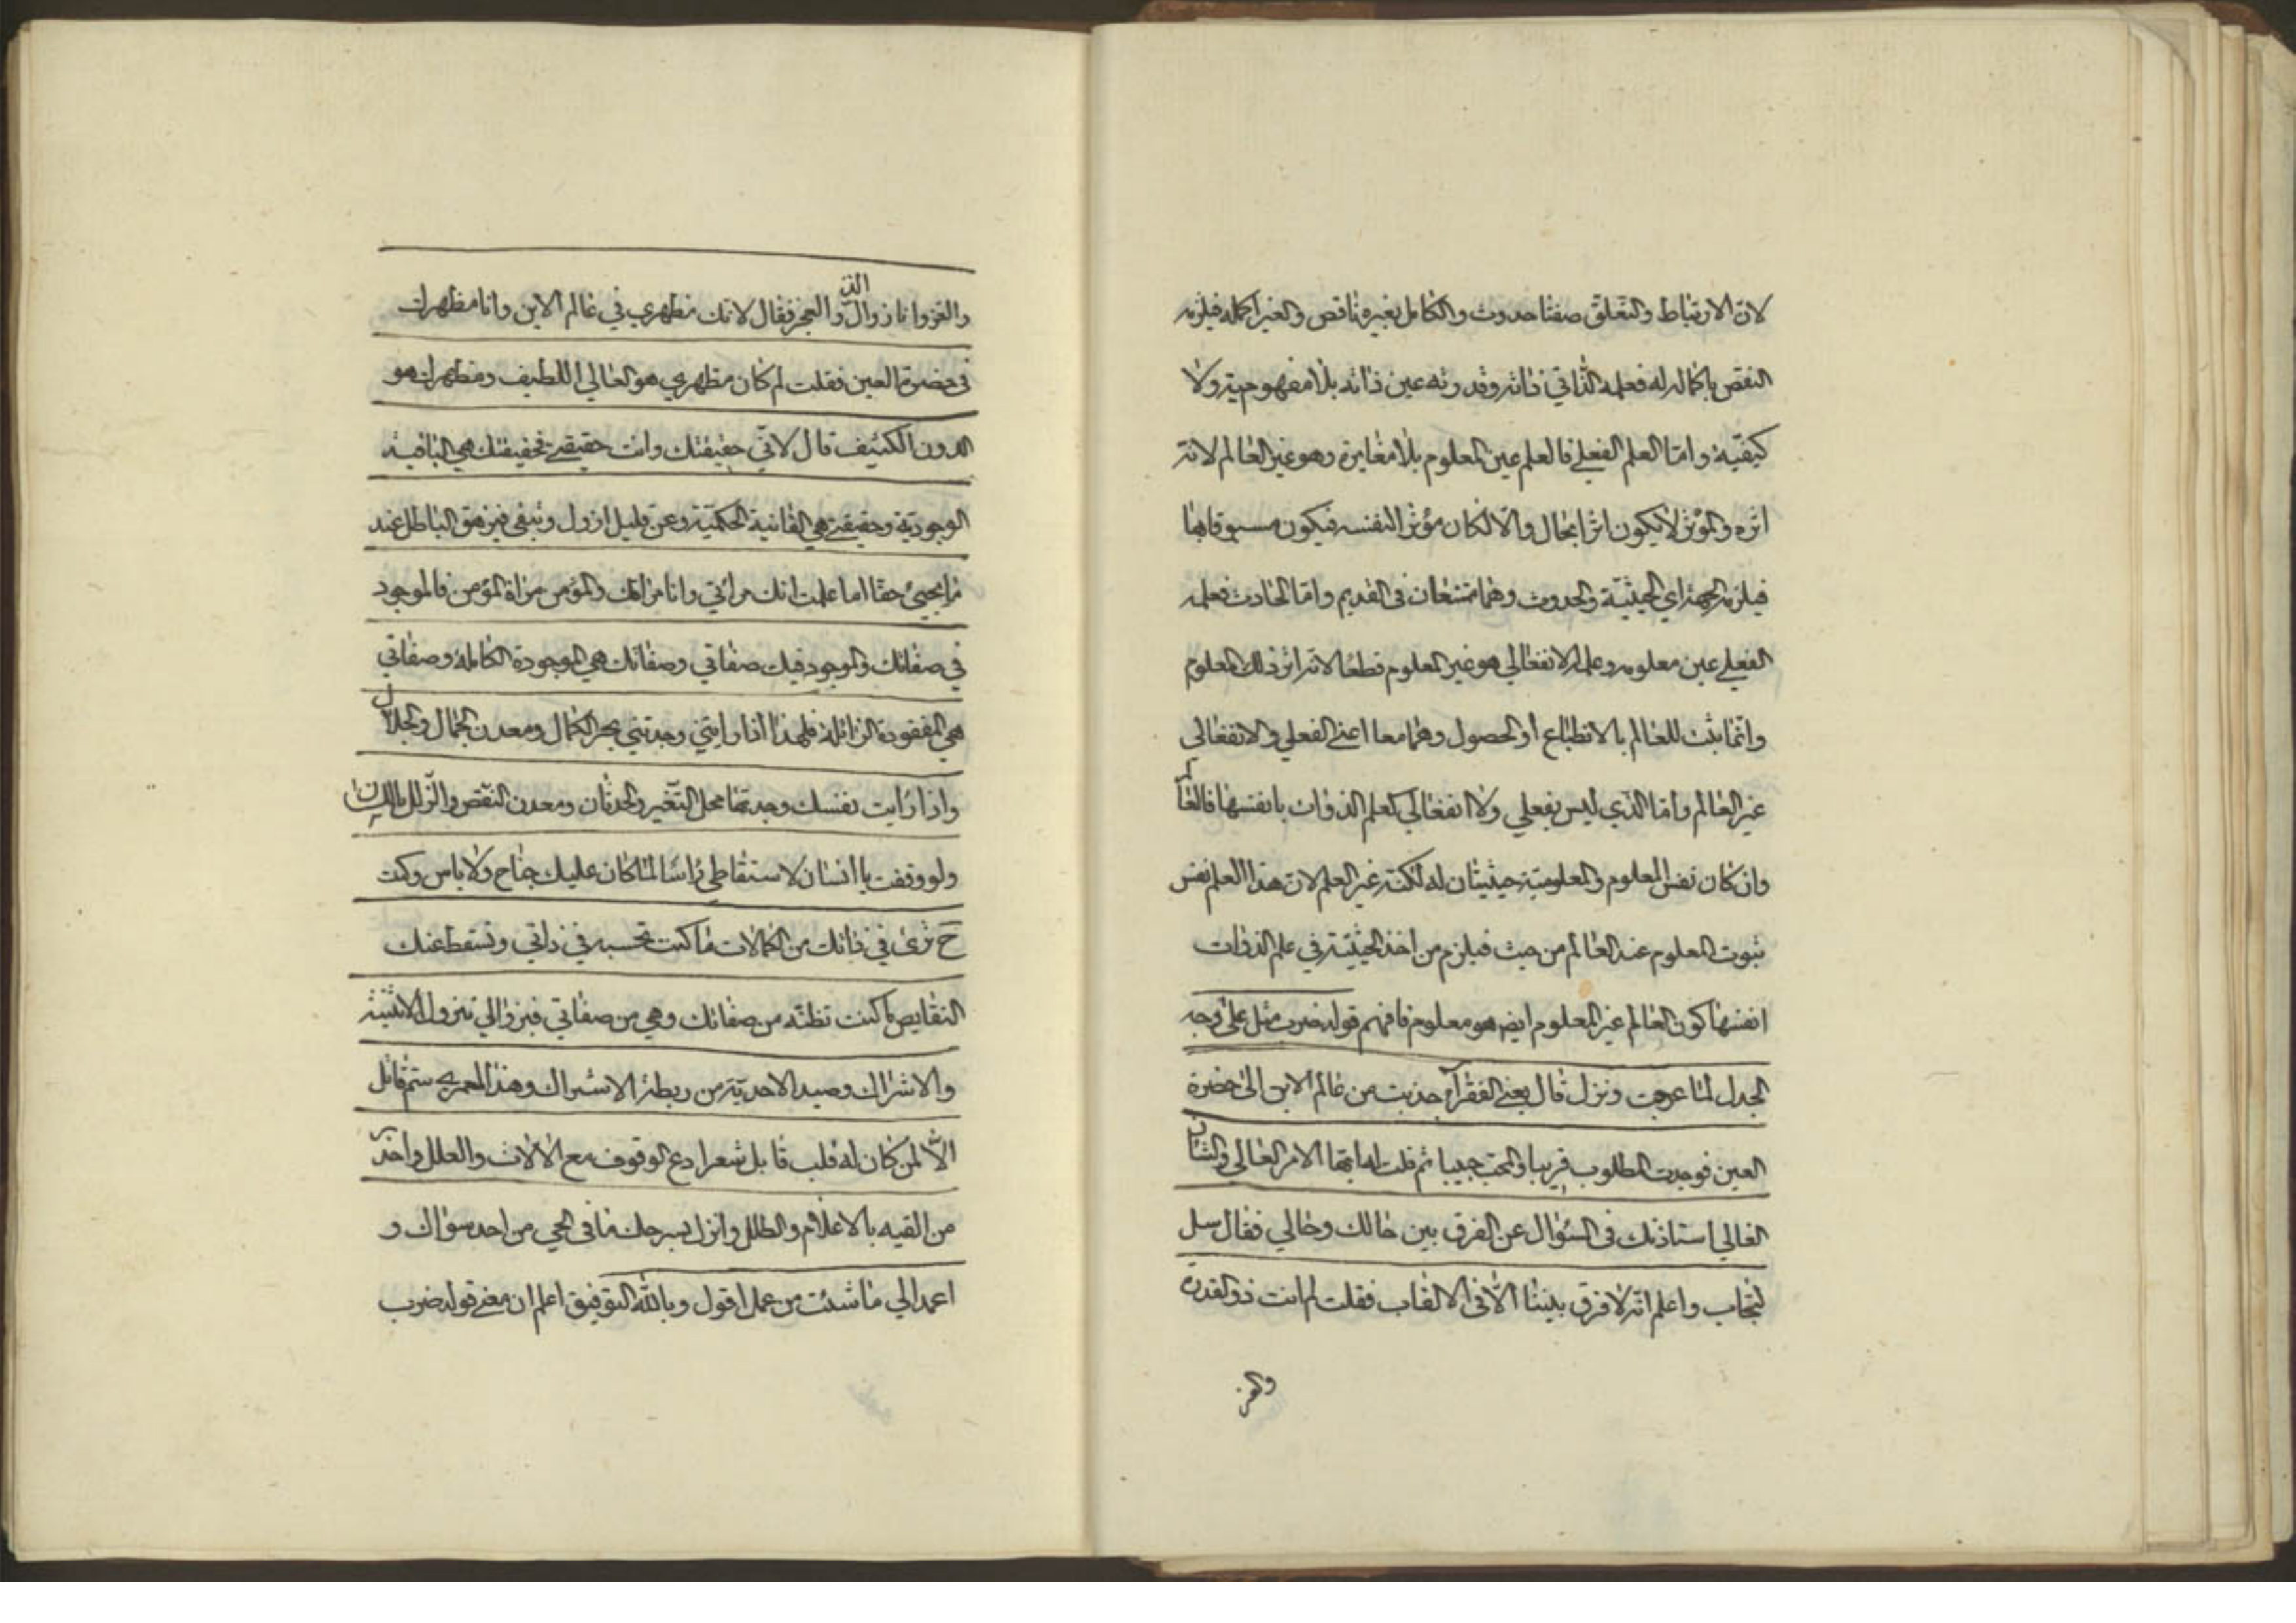 لان الارتباط والتعلق صفتا حدوث والكامل بغيره ناقص والغير اكمله فيلزمه
النقص باكماله له فعلمه الذاتي ذاته وقدرته عين ذاته بلا مفهومية ولا
كيفية واما العلم الفعلي فالعلم عين المعلوم بلا مغايرة وهو غير العالم لانه
اثره والمؤثر لا يكون اثرا بحال والا لكان مؤثرا لنفسه فيكون مسبوقا بها
فيلزمه الجهة اي الحيثية والحدوث وهما ممتنعان في القديم واما الحادث فعلمه
الفعلي عين معلومه وعلمه الانفعالي هو غير المعلوم قطعا لانه اثر ذلك المعلوم
وانما ثبت للعالم بالانطباع او الحصول وهما معا اعني الفعلي والانفعالي
غير العالم واما الذي ليس بفعلي ولا انفعالي كعلم الذوات بانفسها فالعالم
وان كان نفس المعلوم والمعلومية حيثيتان له لكنه غير العلم لان هذا العلم نفس
ثبوت المعلوم عند العالم من حيث فيلزم من اخذ الحيثية في علم الذوات
انفسها كون العالم غير المعلوم ايض هو معلوم فافهم قوله ضرب مثل على وجه
الجدل لما عرجت ونزل قال يعني الفقرآء جذبت من عالم الاين الى حضرة
العين فوجدت المطلوب قريبا والمحب حبيبا ثم قلت له ايها الامر العالي والشان
الغالي استاذنك في السؤال عن الفرق بين حالك وحالي فقال سل
لتجاب واعلم انه لا فرق بيننا الا في الالقاب فقلت لم انت ذو القدرة
والعز
والعز وانا ذو الذل والعجز فقال لانك مظهري في عالم الاين وانا مظهرك
في حضرة العين فقلت لم كان مظهري هو العالي اللطيف ومظهرك هو
الدون الكثيف قال لاني حقيقتك وانت حقيقتي فحقيقتك هي الباقية
الوجودية وحقيقتي هي الفانية الحكمية وعن قليل ازول وتبقى فيزهق الباطل عند
ما يجيئ حقا اما علمت انك مرآتي وانا مرآتك والمؤمن مرآة المؤمن فالموجود
في صفاتك والموجود فيك صفاتي وصفاتك هي الموجودة الكاملة وصفاتي
هي المفقودة الزائلة فلهذا اذا رايتني وجدتني بحر الكمال ومعدن الجمال والجلال
واذا رايت نفسك وجدتها محل التغير والحدثان ومعدن النقص والزلل
ولو وقفت يا انسان لاستقاطي راسا لما كان عليك جناح ولا باس وكنت
ح ترى في ذاتك من الكمالات ما كنت تحسبه في ذاتي وتسقط عنك
النقايص ما كنت تظنه من صفاتك وهي من صفاتي فبزوالي تزول الاثنينية
والاشراك وصيد الاحدية من ربطة الاشراك وهذا لعمري ستم قاتل
الا لمن كان له قلب قابل شعرا دع الوقوف مع الآلات والعلل واحذر
من القيه بالاعلام والطلل وانزل بسرحك ما في الحي من احد سواك و
اعمد الي ما شئت من عمل اقول وبالله التوفيق اعلم ان معنى قوله ضرب